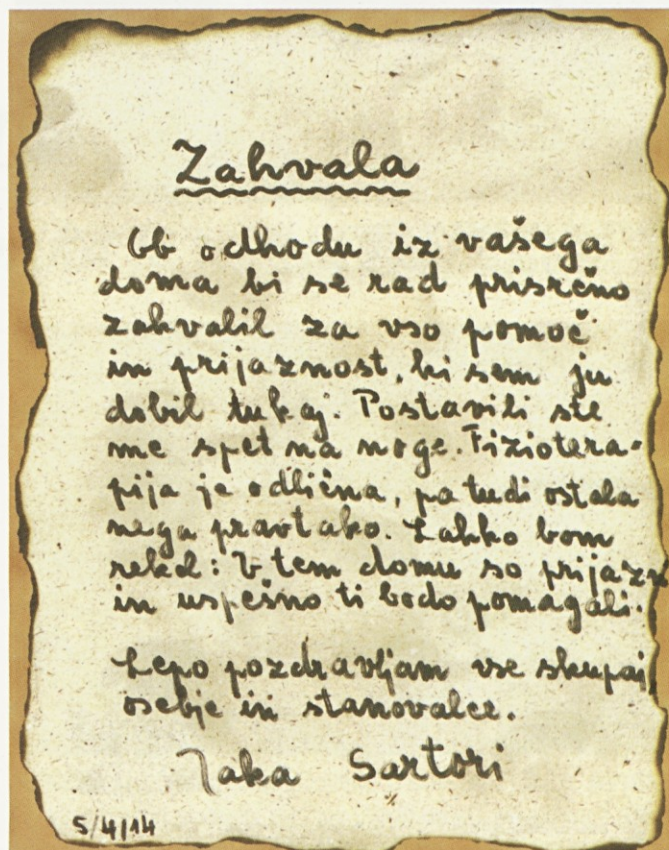 Zahvala
Ob odhodu iz vašega
doma bi se rad prisrčno
zahvalil za vso pomoč
in prijaznost, ki sem ju
dobil tukaj. Postavili ste
me spet na noge. Fiziotera-
pija je odlična, pa tudi ostala
nega pravtako. Lahko bom
rekel: V tem domu so prijazn
in uspešno ti bodo pomagali.
Lepo pozdravljam vse skupaj
osebje in stanovalce.
Jaka Sartori
5/4/14